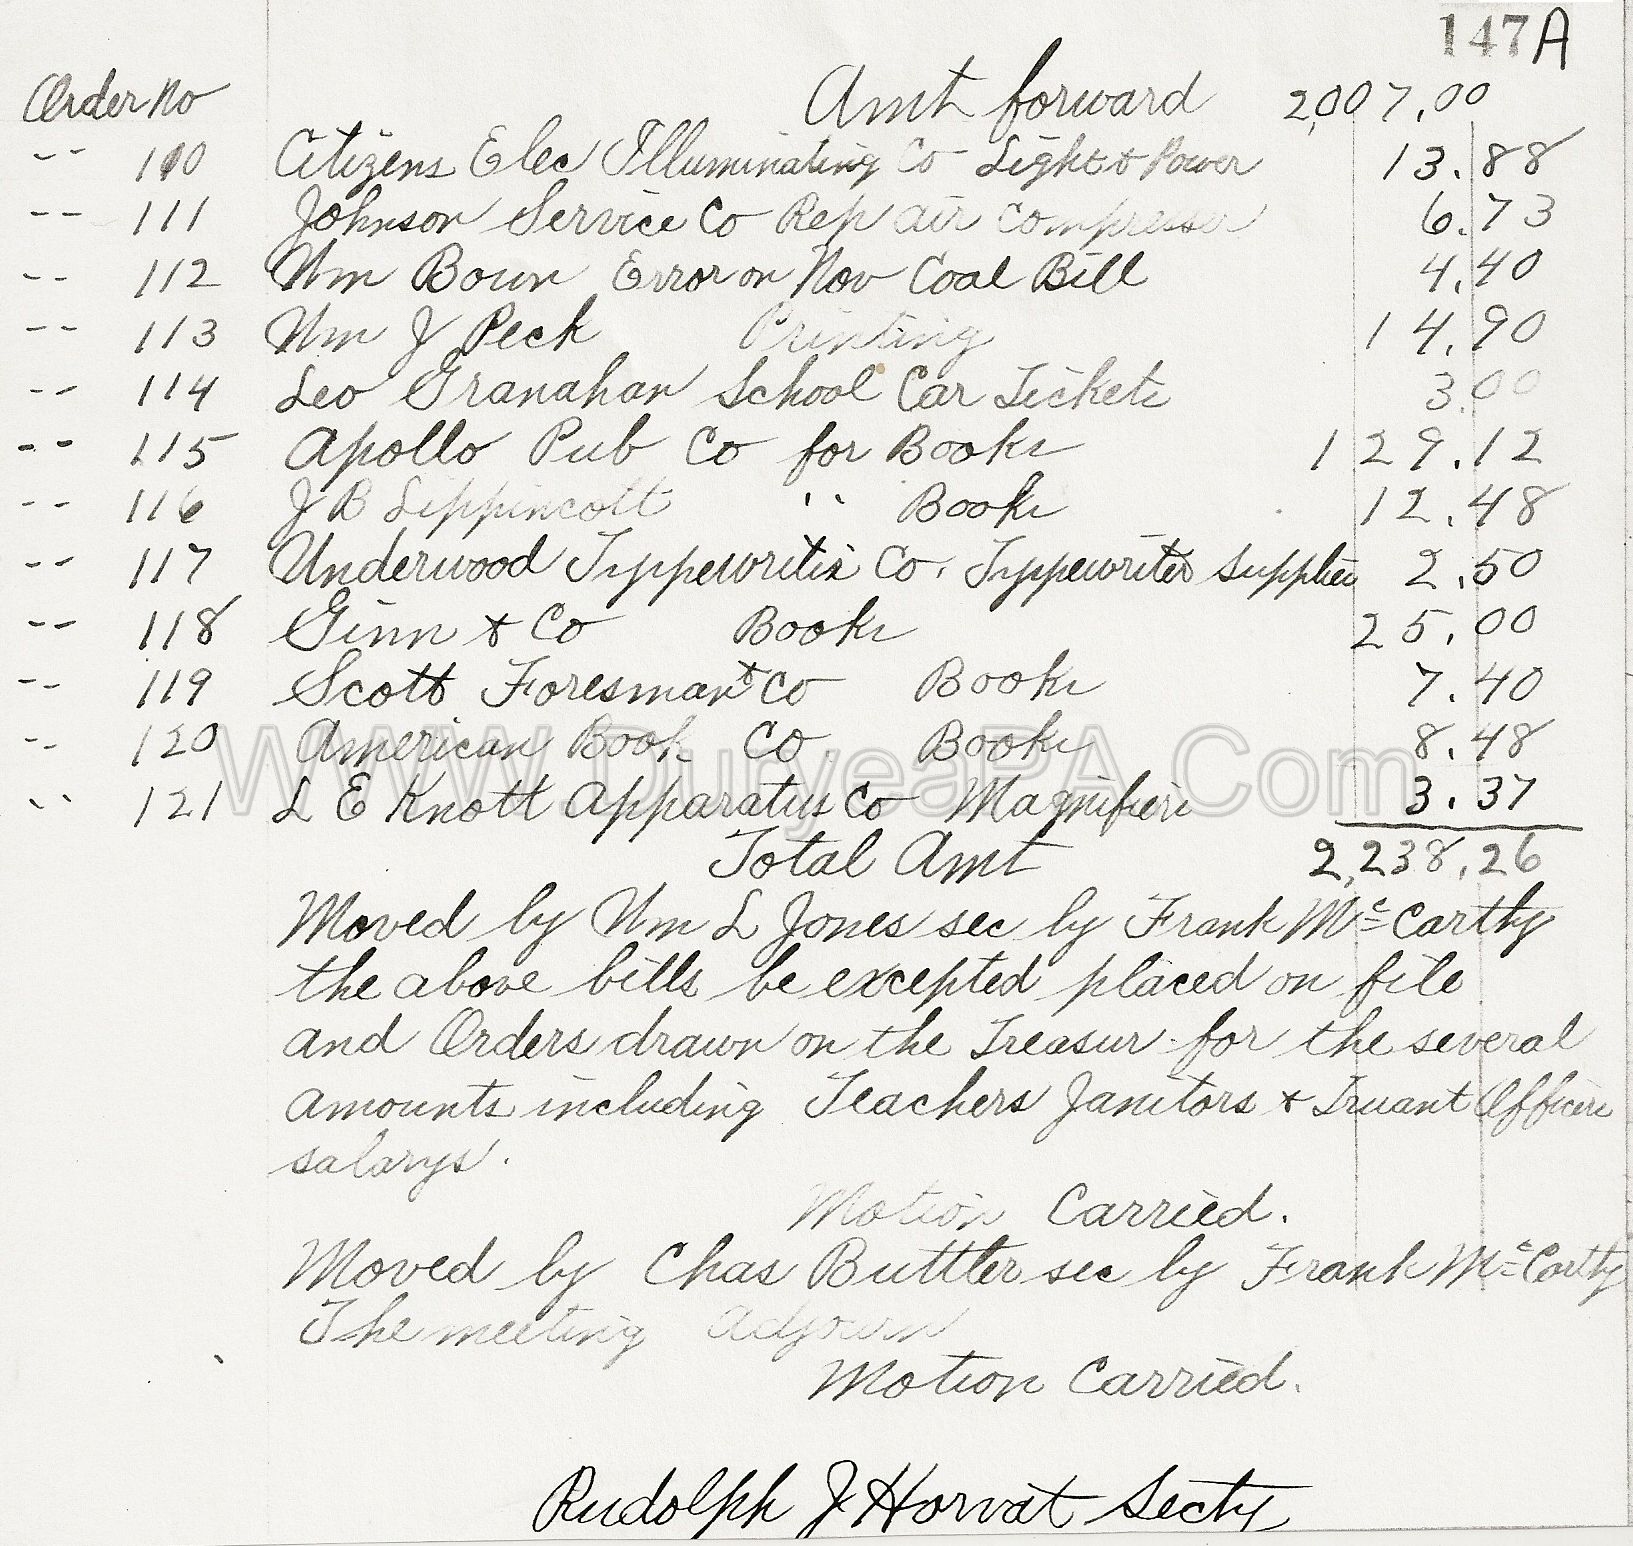 147A
Order No Amt forward 2,007,00
-- 110 Citizens Elec Illuminating Co Light & Power 13.88
-- 111 Johnson Service Co Rep air compresser 6.73
-- 112 Wm Bourn Error on Nov Coal Bill 4.40
-- 113 Wm J Peck Printing 14.90
-- 114 Leo Granahan School Car Tickets 3.00
-- 115 Apollo Pub Co for Books 129.12
-- 116 J B Lippincott '' Books 12.48
-- 117 Underwood Typpewriter Co. Typpewriter Supplies 2.50
-- 118 Ginn & Co Books 25.00
-- 119 Scott Foresman & Co Books 7.40
-- 120 American Book Co Books 8.48
-- 121 L E Knott Apparatus Co Magnifiers 3.37
WWW.DuryeaPA.Com
Total Amt 2,238.26
Moved by Wm L Jones sec by Frank McCarthy
the above bills be excepted placed on file
and Orders drawn on the Treasur for the several
amounts including Teachers Janitors & Truant Officers
salarys.
Motion Carried.
Moved by Chas Buttler sec by Frank McCarthy
The meeting adjourn
Motion Carried.
Rudolph J Horvat Secty